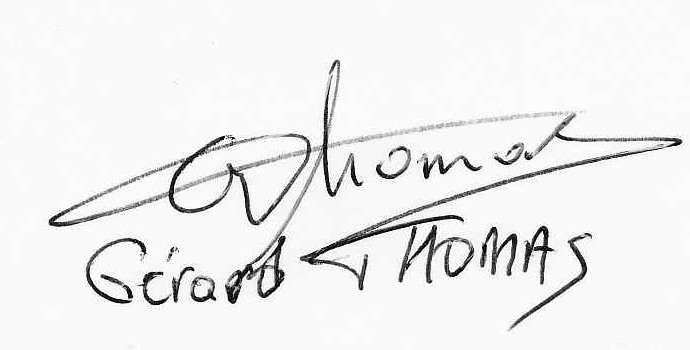 GThomas
Gérard THOMAS